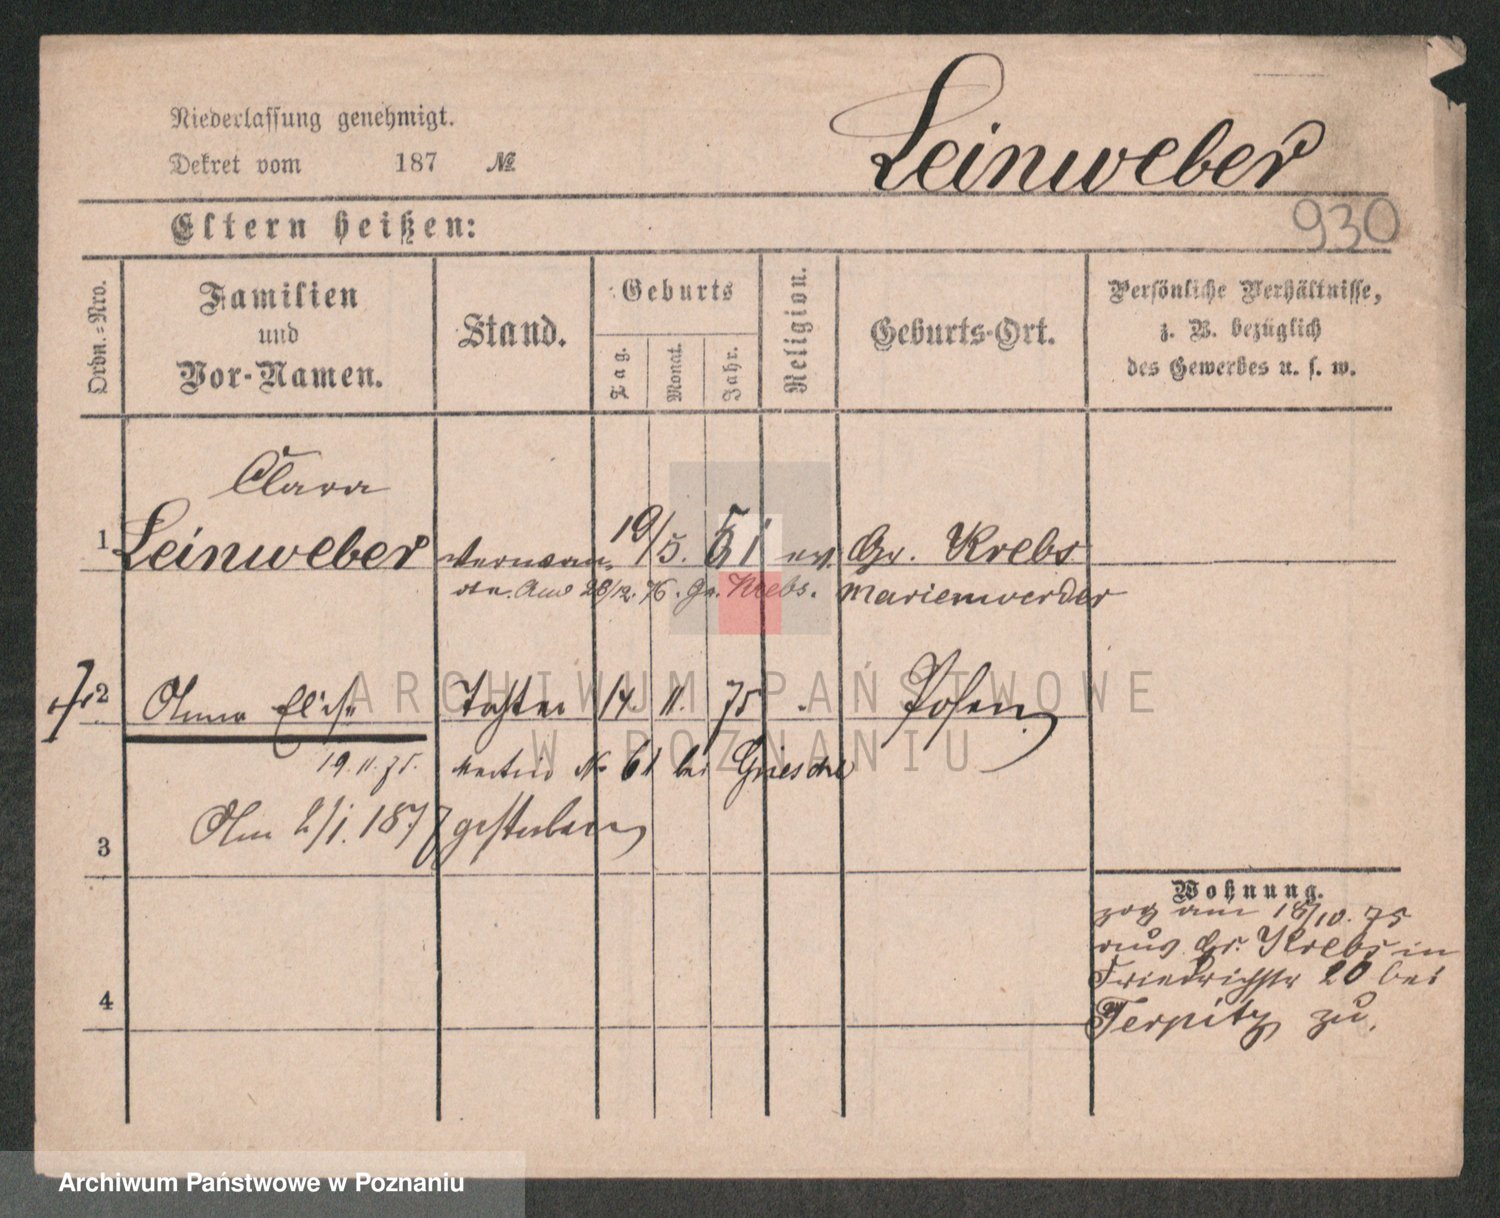 Niederlassung genehmigt.
Leinweber
Dekret vom 187 №
930
Eltern heißen:
Ordn.-Nro.
Familien
und
Vor-Namen.
Stand.
Geburts
Tag.
Monat.
Jahr.
Religion.
Geburts-Ort.
Persönliche Verhältnisse,
z. B. bezüglich
des Gewerbes u. s. w.
Clara
1 Leinweber 19/5. 51 ev. Gr. Krebs
28/12. 76. Gr. Krebs. Marienwerder
2 Anna Elise Tochter 14. 11. 75 Posen
19.11.75. Martin No 61 bei Griesche
3 Am 2/1. 1877 gestorben
Wohnung.
zog am 18/10. 75
aus Gr. Krebs in
Friedrichstr 20 bei
Terpitz zu.
4
ARCHIWUM PAŃSTWOWE
W POZNANIU
Archiwum Państwowe w Poznaniu